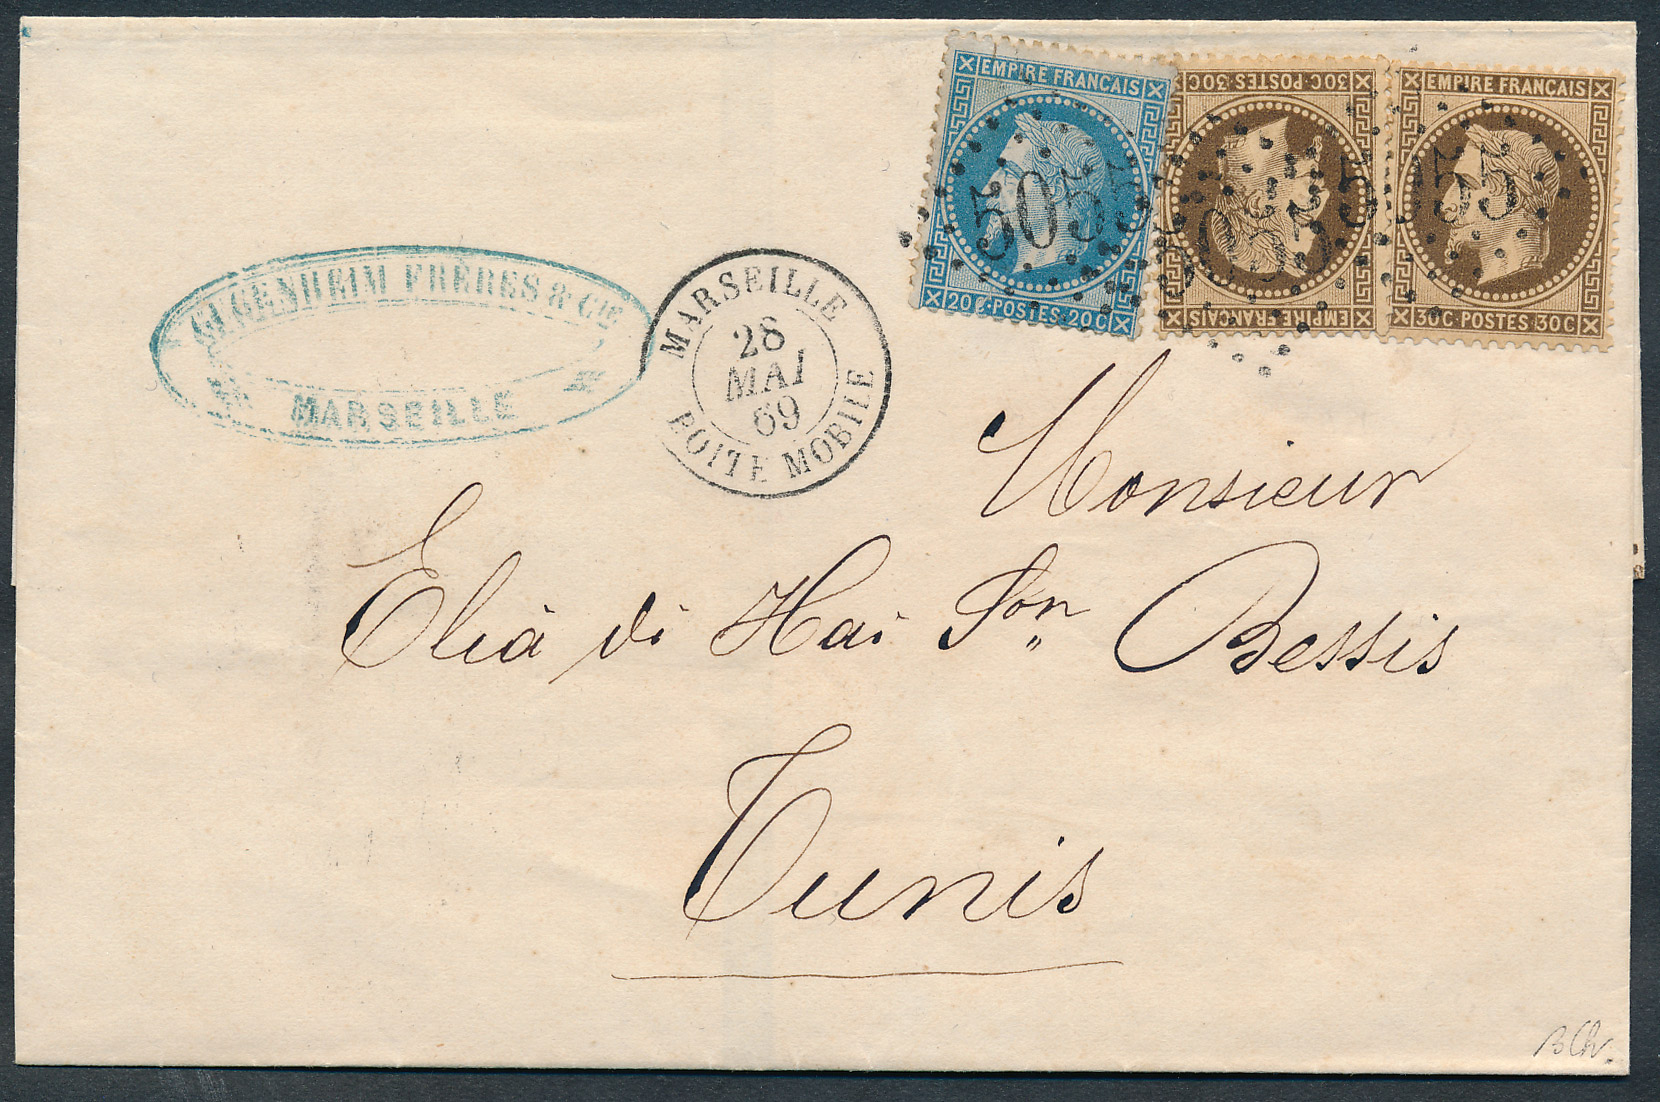 EMPIRE FRANÇAIS
20 C. POSTES 20 C
30 C. POSTES 30 C
EMPIRE FRANÇAIS
EMPIRE FRANÇAIS
30 C. POSTES 30 C
5055
5055
5055
FRÈRES & Cie
MARSEILLE
MARSEILLE
28
MAI
69
BOITE MOBILE
Monsieur
Elia di Hai Jon Bessis
Tunis
BCh.